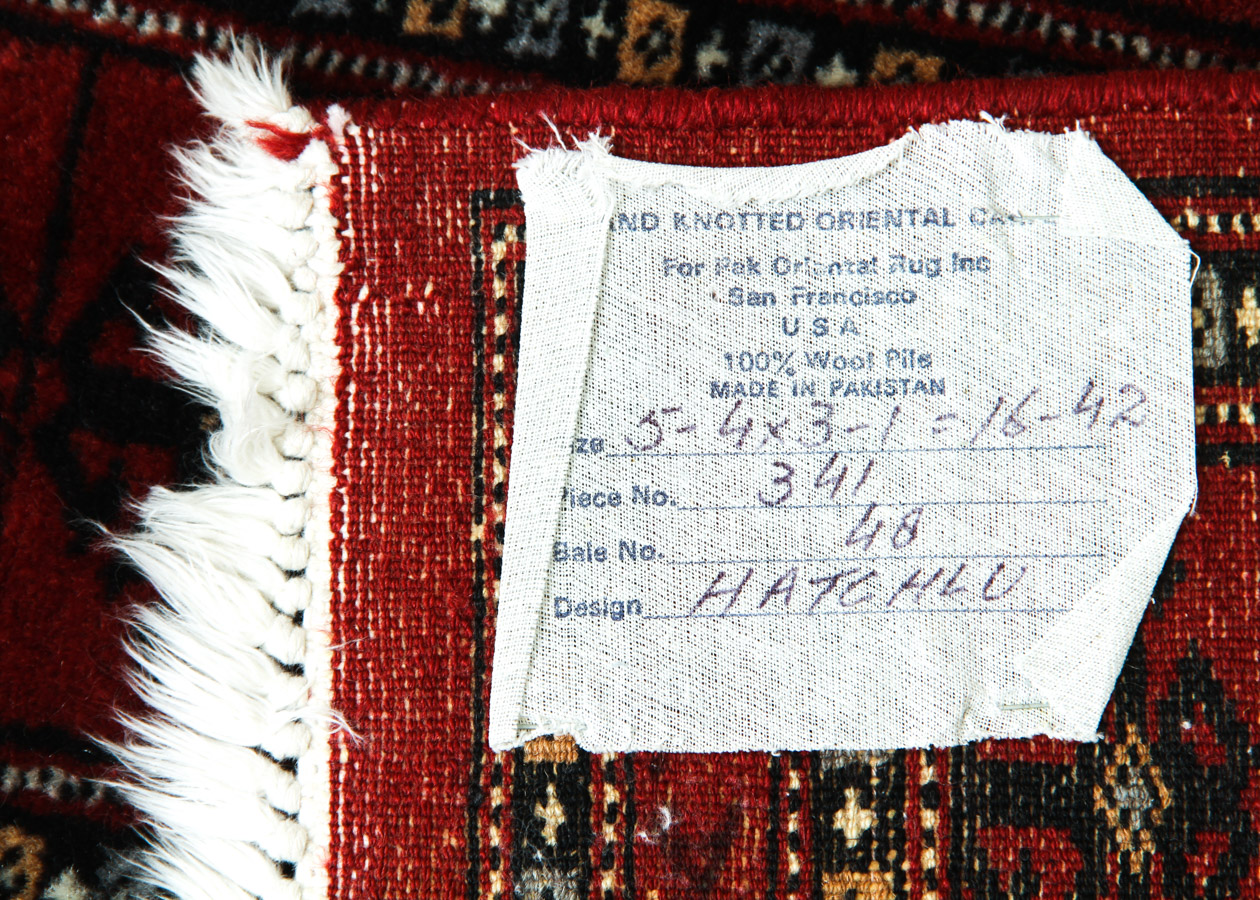 ND KNOTTED ORIENTAL CA
For Pak Oriental Rug Inc
San Francisco
U S A
100% Wool Pile
MADE IN PAKISTAN
ze 5-4x3-1=16-42
Piece No. 341
Bale No. 48
Design HATCHLU